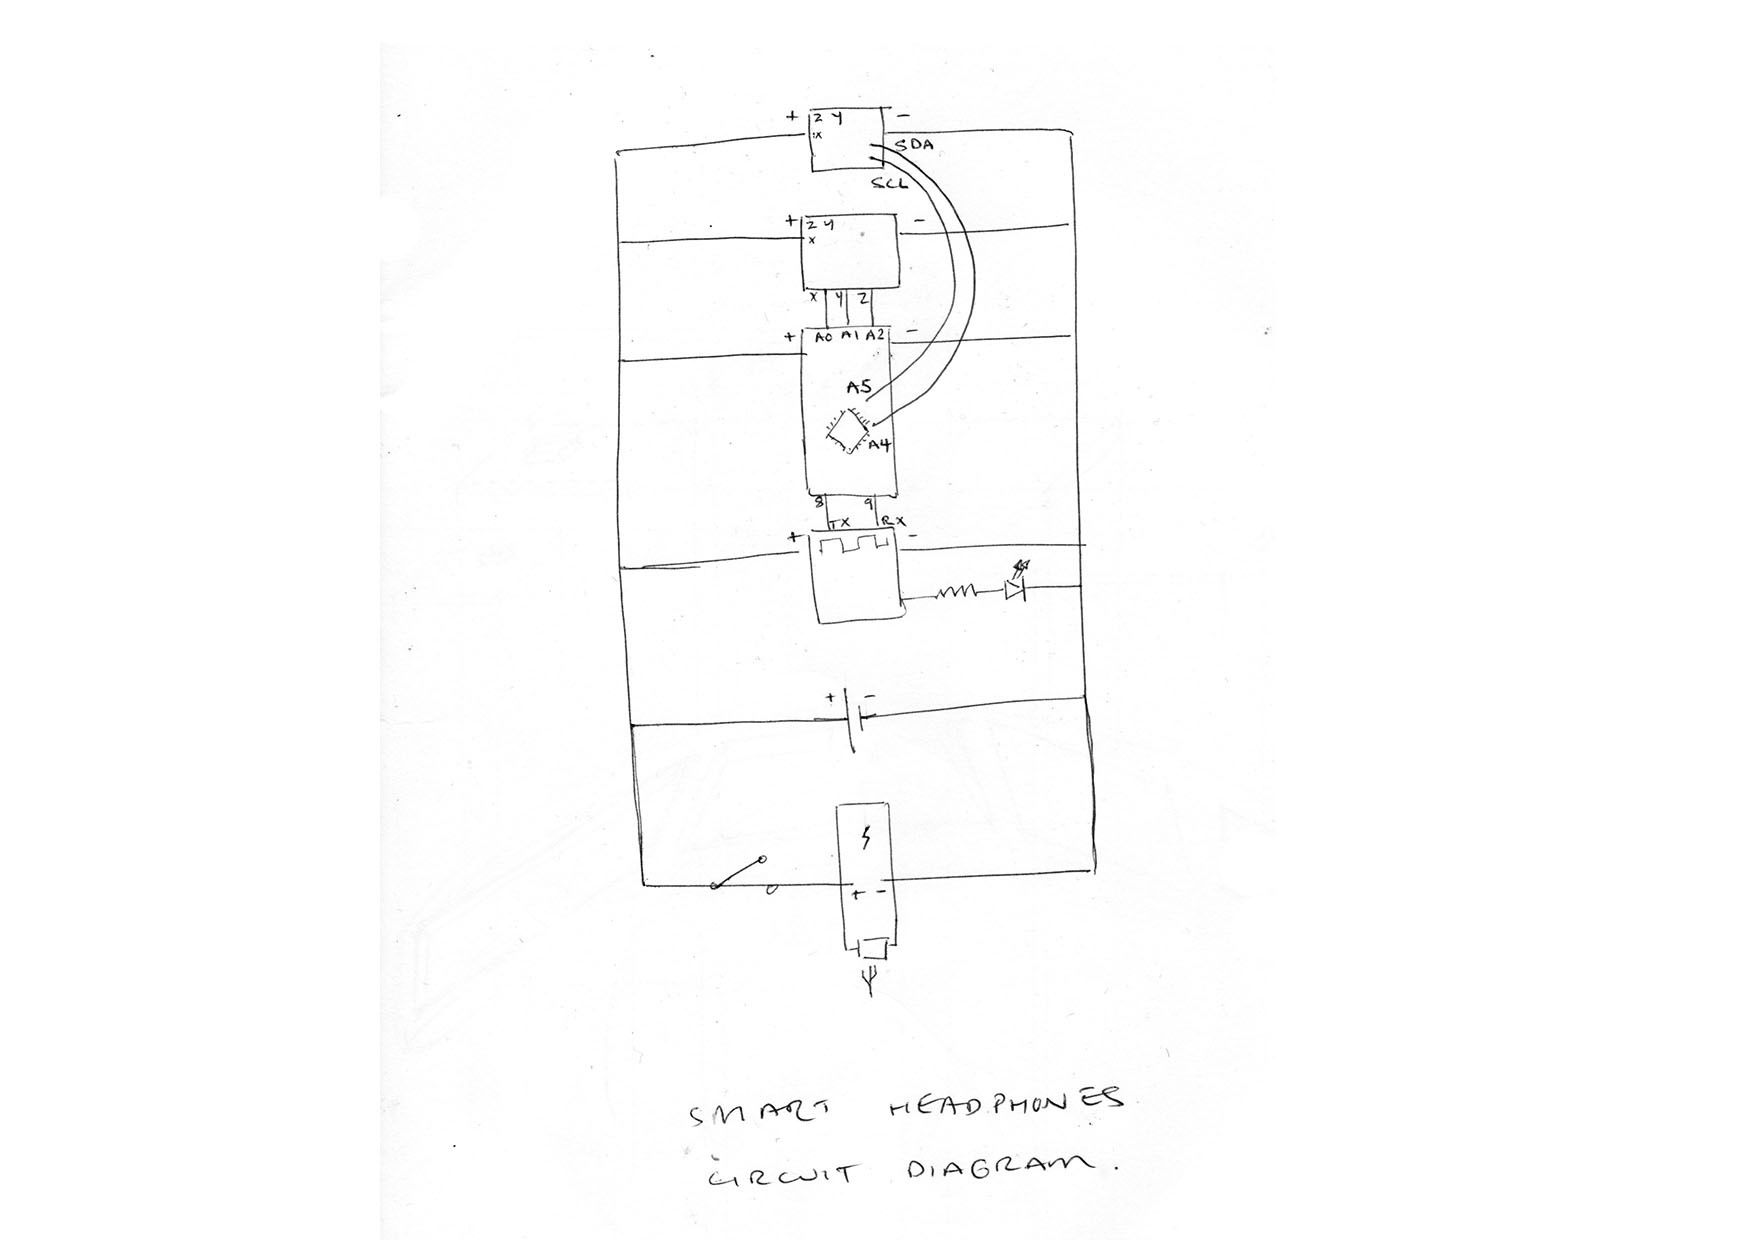 + Z Y -
X
SDA
SCL
+ Z Y -
X
X Y Z
+ A0 A1 A2 -
A5
A4
8 9
TX RX
+ -
+ -
+ -
SMART HEADPHONES
CIRCUIT DIAGRAM.